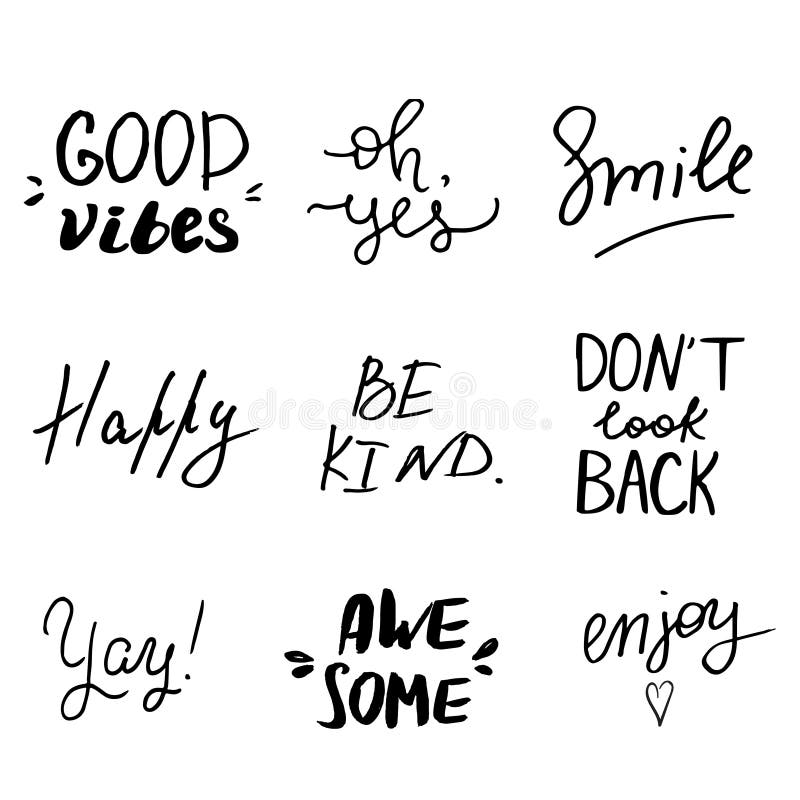 GOOD
vibes
oh,
yes
Smile
Happy
BE
KIND.
DON'T
look
BACK
Yay!
AWE
SOME
enjoy
dreamstime.